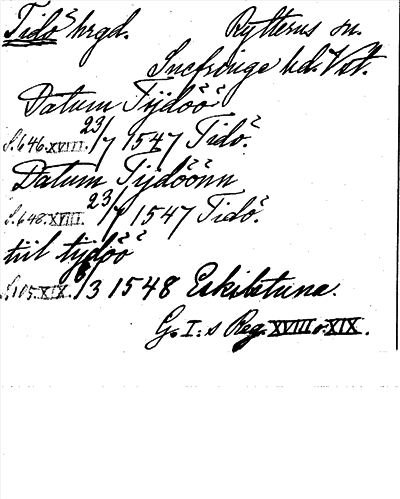 Tidö hrgd. Rytterns sn.
Snefringe hd. Vstm.
Datum Tijdöö
S. 646. XVIII. 23/7 1547 Tidö.
Datum Tijdöönn
S. 648. XVIII. 23/7 1547 Tidö.
till tijdöö
S. 105. XIX. 6/3 1548 Eskilstuna.
G. I:s Reg. XVIII o. XIX.